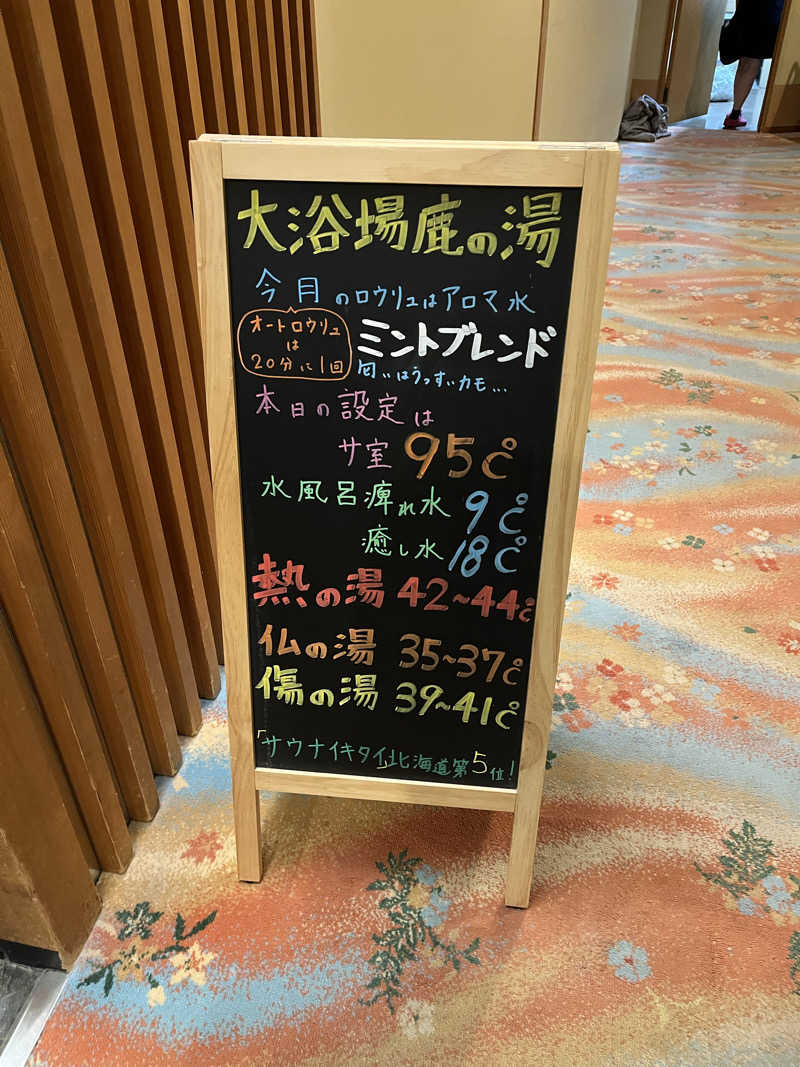 大浴場鹿の湯
今月のロウリュはアロマ水
オートロウリュ
は
20分に1回
ミントブレンド
匂いはうっすぃカモ…
本日の設定は
サ室 95℃
水風呂痺れ水 9℃
癒し水 18℃
熱の湯 42~44℃
仏の湯 35~37℃
傷の湯 39~41℃
「サウナイキタイ」北海道第5位!